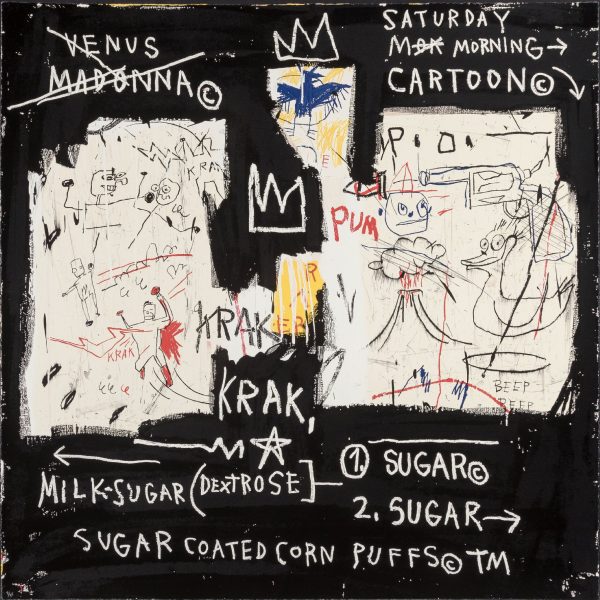 VENUS
MADONNA©
SATURDAY
MOK MORNING→
CARTOON©
KRAK
P.O.
E
PUM
R
KRAK
ER
KRAK
BEEP
BEEP
KRAK,
MILK-SUGAR (DEXTROSE]
1. SUGAR©
2. SUGAR→
SUGAR COATED CORN PUFFS© TM